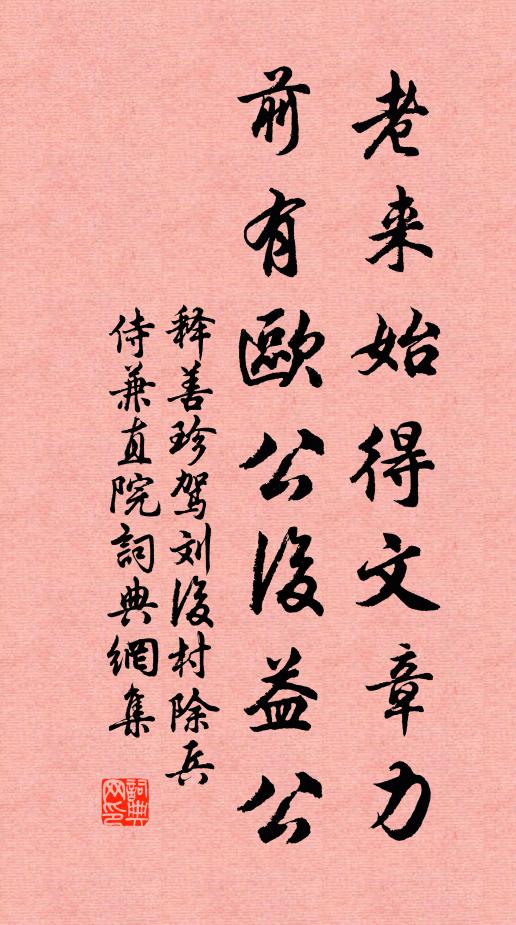 老来始得文章力
前有歐公後益公
释善珍駕刘後村除兵
侍兼直院詞典網集
詞典网印